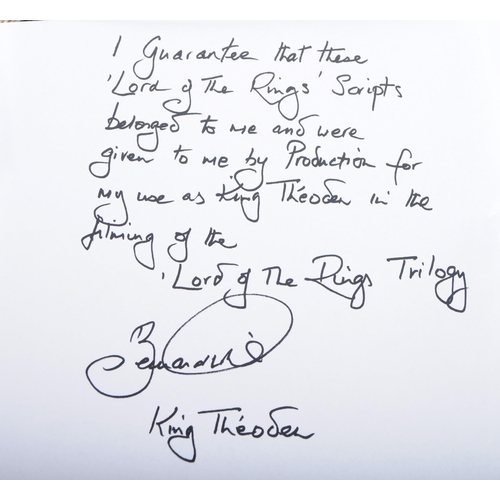 I Guarantee that these
'Lord of The Rings' Scripts
belonged to me and were
given to me by Production for
my use as King Théoden in the
filming of the
'Lord of The Rings Trilogy
King Théoden